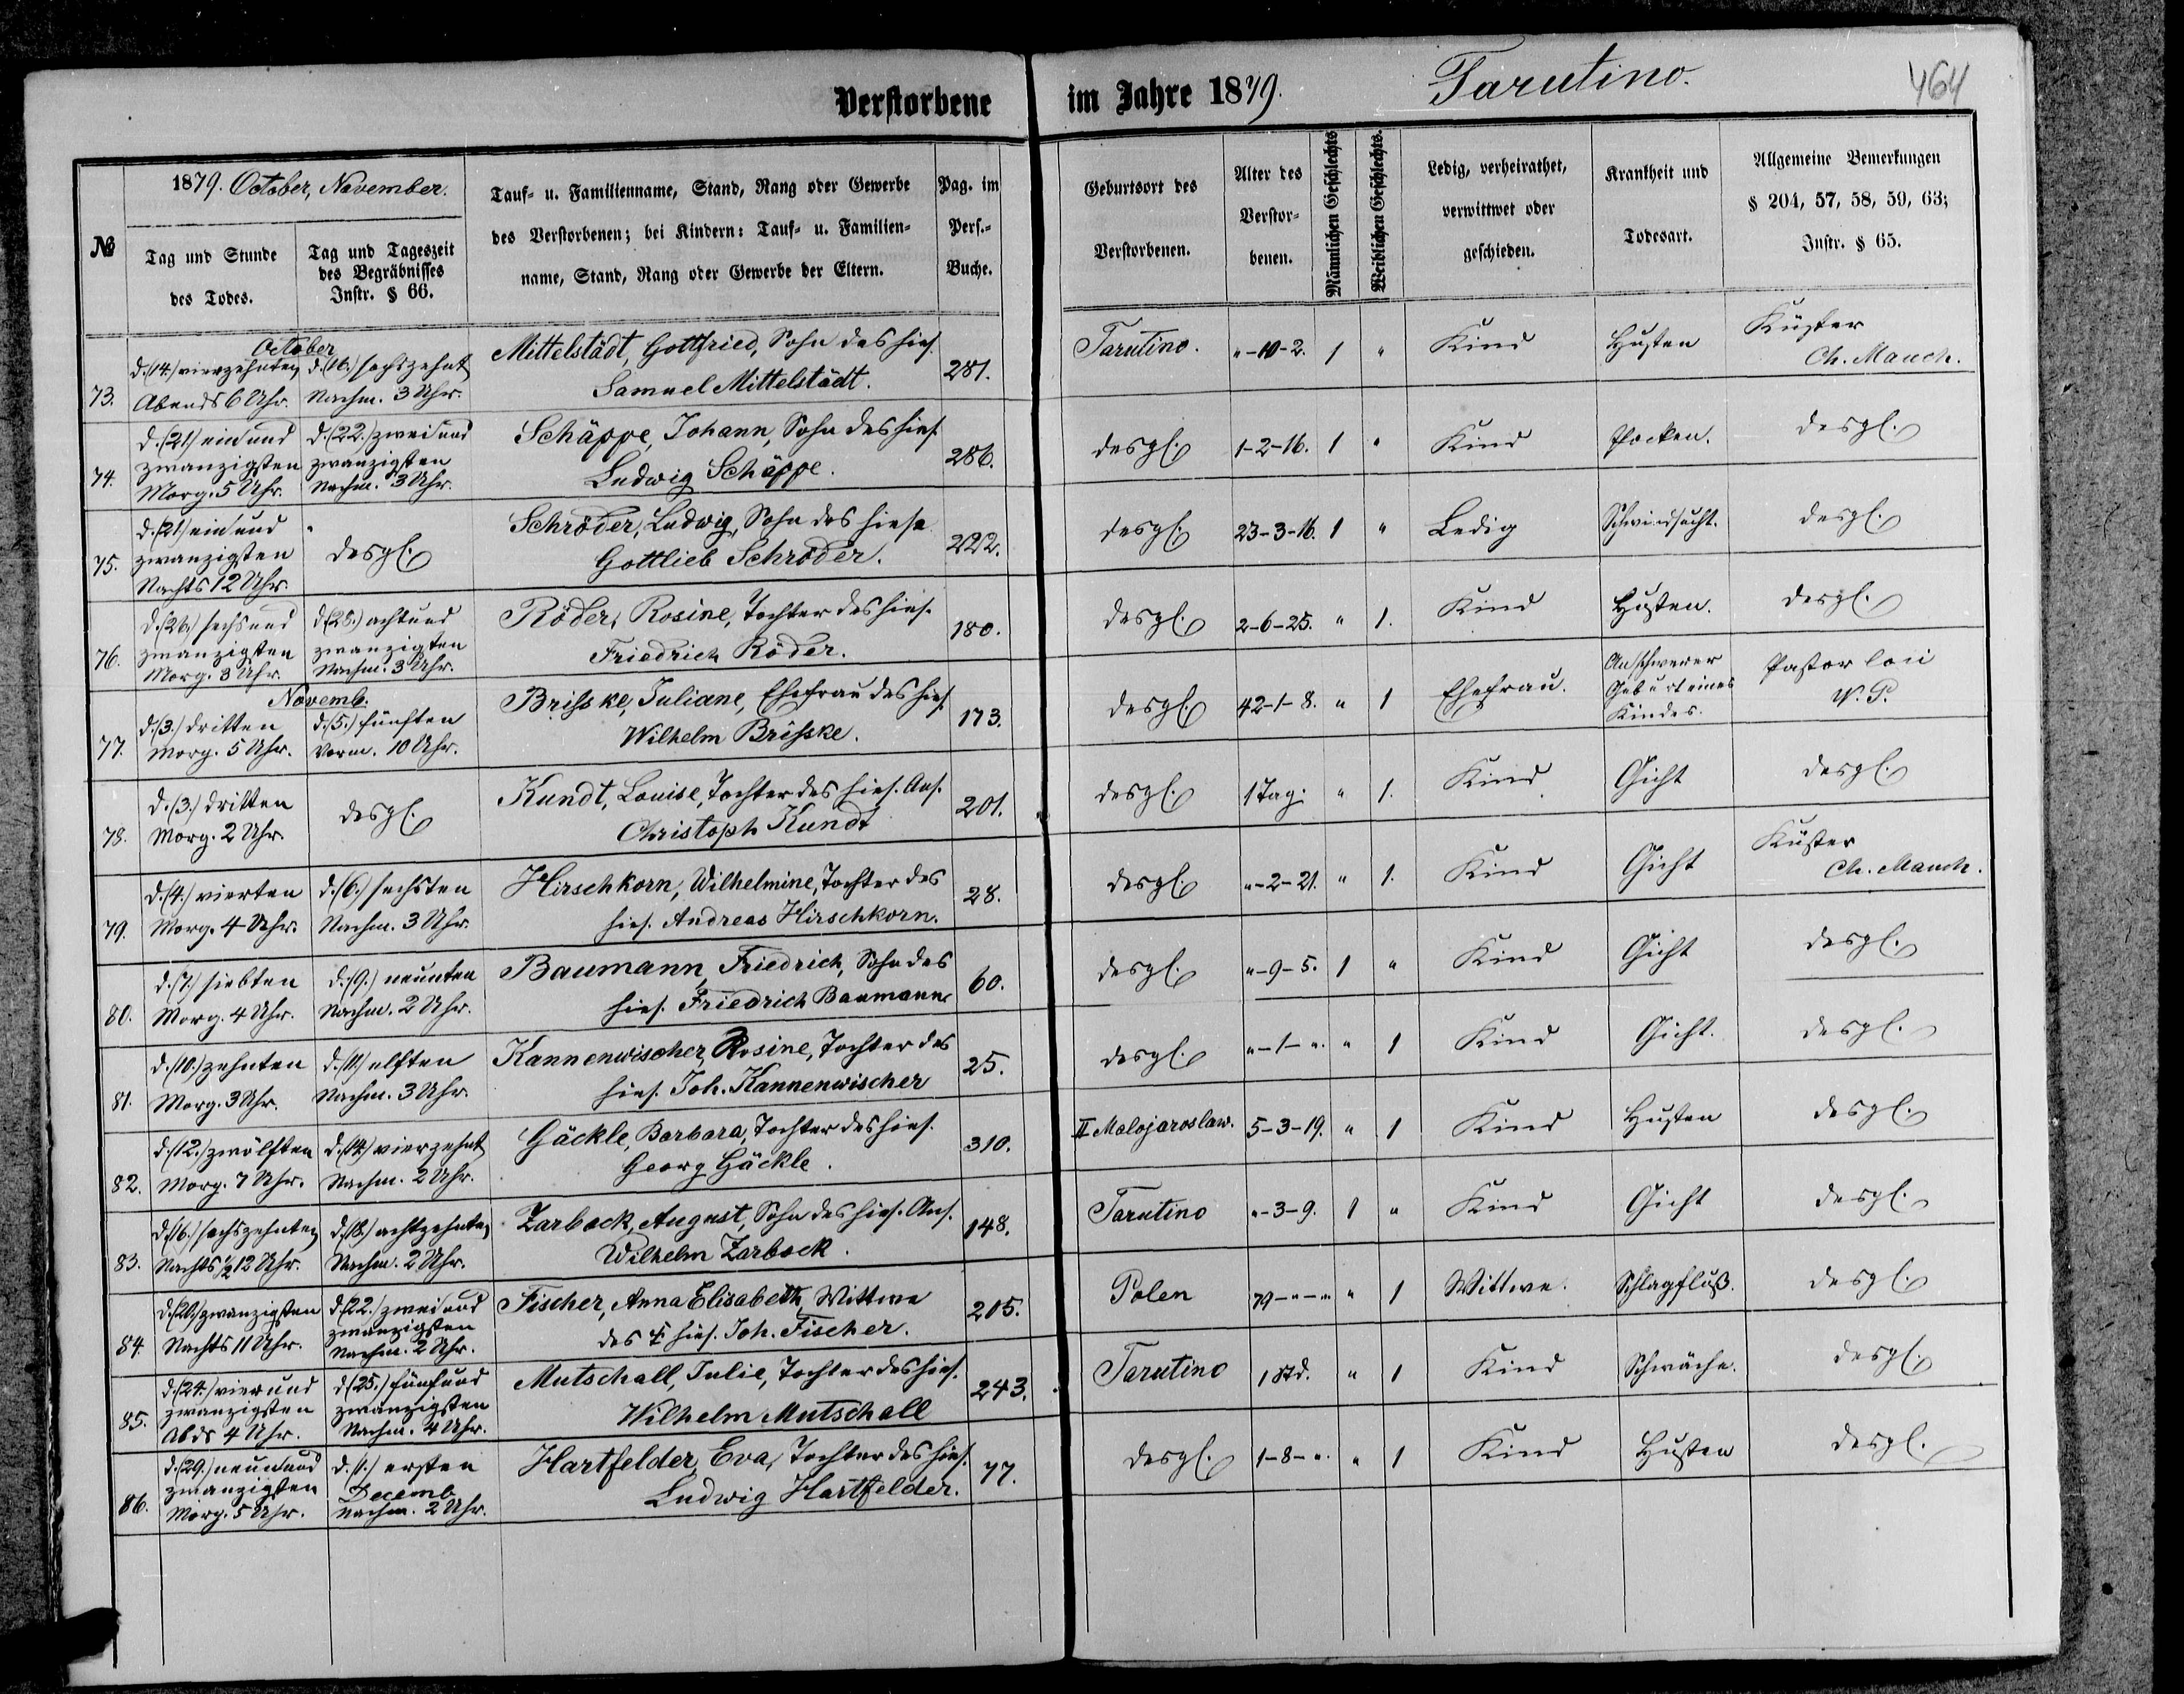 Verstorbene im Jahre 1879. Tarutino. 464
№
1879. October, November.
Tag und Stunde
des Todes.
Tag und Tageszeit
des Begräbnisses
Instr. § 66.
Tauf- u. Familienname, Stand, Rang oder Gewerbe
des Verstorbenen; bei Kindern: Tauf- u. Familien-
name, Stand, Rang oder Gewerbe der Eltern.
Pag. im
Pers.-
Buche.
Geburtsort des
Verstorbenen.
Alter des
Verstor-
benen.
Männlichen Geschlechts
Weiblichen Geschlechts.
Ledig, verheirathet,
verwittwet oder
geschieden.
Krankheit und
Todesart.
Allgemeine Bemerkungen
§ 204, 57, 58, 59, 63;
Instr. § 65.
October
73.
d. (14.) vierzehnten
Abends 6 Uhr.
d. (16.) sechszehnt
Nachm. 3 Uhr.
Mittelstädt, Gottfried, Sohn des hies.
Samuel Mittelstädt.
281.
Tarutino. "-10-2. 1 " Kind Husten
Küster
Ch. Mauch.
74.
d. (21.) ein und
zwanzigsten
Morg. 5 Uhr.
d. (22.) zwei und
zwanzigsten
Nachm. 3 Uhr.
Schäppe, Johann, Sohn des hies.
Ludwig Schäppe.
286.
desgl. 1-2-16. 1 " Kind Pocken. desgl.
75.
d. (21.) ein und
zwanzigsten
Nachts 12 Uhr.
"
desgl.
Schröder, Ludwig, Sohn des hies.
Gottlieb Schröder.
222.
desgl. 23-3-16. 1 " Ledig Schwindsucht. desgl.
76.
d. (26.) sechs und
zwanzigsten
Morg. 3 Uhr.
d. (28.) acht und
zwanzigsten
Nachm. 3 Uhr.
Röder, Rosine, Tochter des hies.
Friedrich Röder.
180.
desgl. 2-6-25. " 1. Kind Husten. desgl.
Novemb.
77.
d. (3.) dritten
Morg. 5 Uhr.
d. (5.) fünften
Vorm. 10 Uhr.
Brißske, Juliane, Ehefrau des hies.
Wilhelm Brißske.
173.
desgl. 42-1-8. " 1 Ehefrau.
An schwerer
Geburt eines
Kindes.
Pastor loci
W. P.
78.
d. (3.) dritten
Morg. 2 Uhr.
desgl.
Kundt, Louise, Tochter des hies. Ans.
Christoph Kundt
201.
desgl. 1 Tag. " 1. Kind Gicht desgl.
79.
d. (4.) vierten
Morg. 4 Uhr.
d. (6.) sechsten
Nachm. 3 Uhr.
Hirschkorn, Wilhelmine, Tochter des
hies. Andreas Hirschkorn.
28.
desgl. "-2-21. " 1. Kind Gicht
Küster
Ch. Mauch.
80.
d. (7.) siebten
Morg. 4 Uhr.
d. (9.) neunten
Nachm. 2 Uhr.
Baumann, Friedrich, Sohn des
hies. Friedrich Baumann
60.
desgl. "-9-5. 1 " Kind Gicht desgl.
81.
d. (10.) zehnten
Morg. 3 Uhr.
d. (11.) elften
Nachm. 3 Uhr.
Kannenwischer, Rosine, Tochter des
hies. Joh. Kannenwischer
25.
desgl. "-1-". " 1 Kind Gicht. desgl.
82.
d. (12.) zwölften
Morg. 7 Uhr.
d. (14.) vierzehnt
Nachm. 2 Uhr.
Gäckle, Barbara, Tochter des hies.
Georg Gäckle.
310.
II Malojaroslaw. 5-3-19. " 1 Kind Husten desgl.
83.
d. (16.) sechszehnten
Nachts ½ 12 Uhr.
d. (18.) achtzehnten
Nachm. 2 Uhr.
Zarbock, August, Sohn des hies. Ans.
Wilhelm Zarbock.
148.
Tarutino "-3-9. 1 " Kind Gicht desgl.
84.
d. (20.) zwanzigsten
Nachts 11 Uhr.
d. (22.) zwei und
zwanzigsten
Nachm. 2 Uhr.
Fischer, Anna Elisabeth, Wittwe
des † hies. Joh. Fischer.
215.
Polen 79-"-" " 1 Wittwe. Schlagfluß. desgl.
85.
d. (24.) vier und
zwanzigsten
Abds 4 Uhr.
d. (25.) fünf und
zwanzigsten
Nachm. 4 Uhr.
Mutschall, Julie, Tochter des hies.
Wilhelm Mutschall
243.
Tarutino 1 Std. " 1 Kind Schwäche. desgl.
86.
d. (29.) neun und
zwanzigsten
Morg. 5 Uhr.
d. (1.) ersten
Decemb
Nachm. 2 Uhr.
Hartfelder, Eva, Tochter des hies.
Ludwig Hartfelder.
77.
desgl. 1-8-". " 1 Kind Husten desgl.